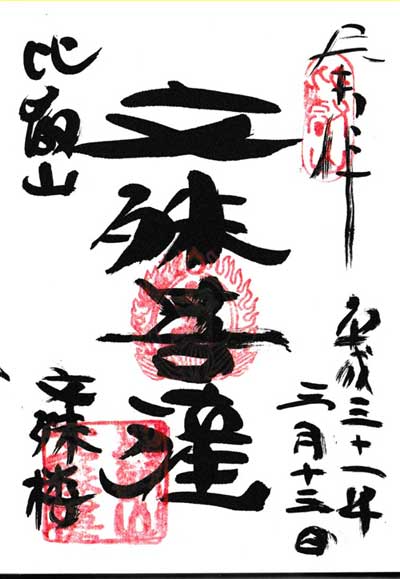 奉拝
平成三十一年
三月十三日
文殊菩薩
比叡山
文殊楼